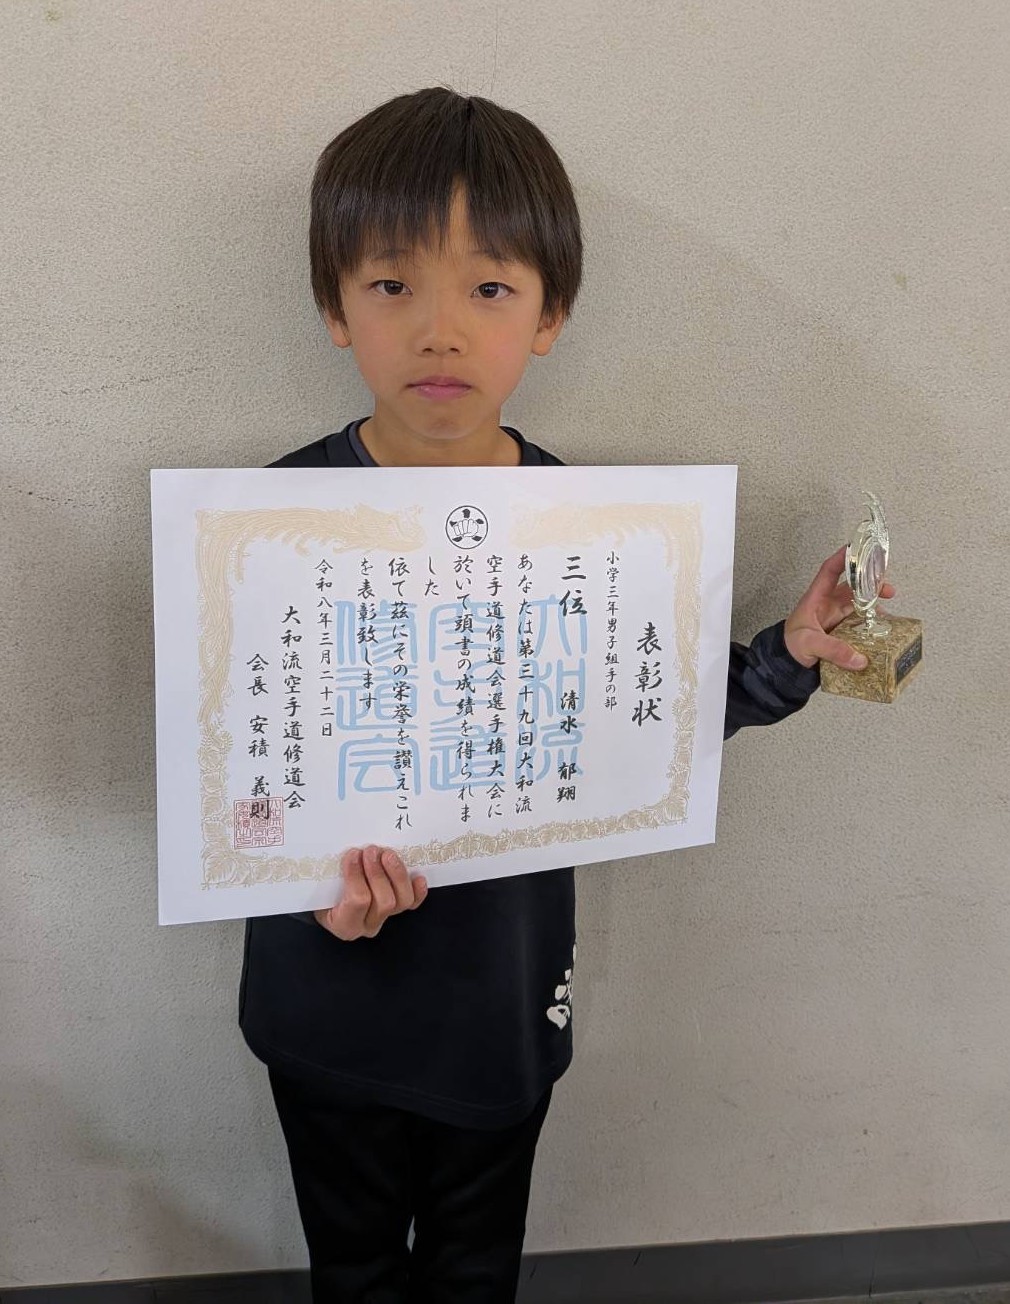 表彰状
小学三年男子組手の部
三位　清水　郁翔
あなたは第三十九回大和流
空手道修道会選手権大会に
於いて頭書の成績を得られま
した
依て茲にその栄誉を讃えこれ
を表彰致します
令和八年三月二十二日
大和流空手道修道会
会長　安積　義則
大和流
空手道
修道会